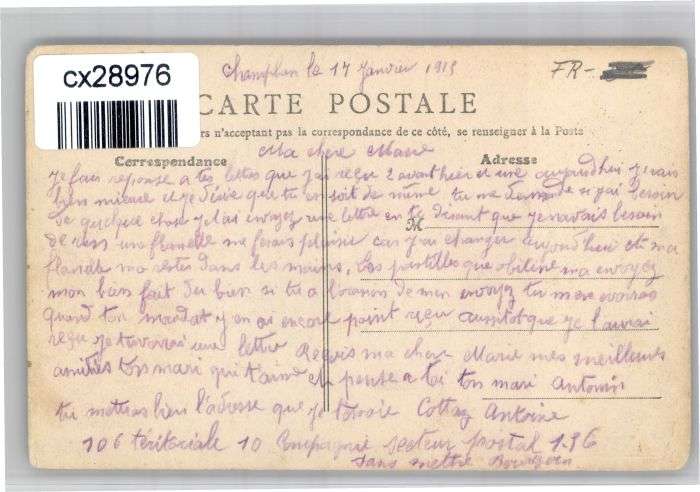 cx28976
Champlan le 17 Janvier 1915
FR-
CARTE POSTALE
rs n'acceptant pas la correspondance de ce côté, se renseigner à la Poste
Ma chere Marie
Correspondance Adresse
je fais reponse a tes lettes que j'ai reçu 2 avant hier et une aujourd'hui je vais
bien mieux et je désire que tu en soit de même tu me demande si j'ai besoin
de quelque chose je t'ai envoyez une lettre en te disant que je n'avais besoin
M
de rien un flanelle me ferais plaisir car j'ai changer aujourd'hui et ma
flanelle ma restes dans les mains, les pastilles que ma envoyez
mon bien fait du bien si tu a l'ocasion de men envoyez tu men
quand ton mandat y en ai encore point reçu aussitot que je l'aurai
reçu je une lettre Reçois ma chere Marie mes meilleures
amitiés ton mari qui t'aime et pense a toi ton mari Antonin
tu mettras bien l'adresse que je t'envoie Cottaz Antoine
106 téritoriale 10 Compagnie secteur postal 136
sans mettre